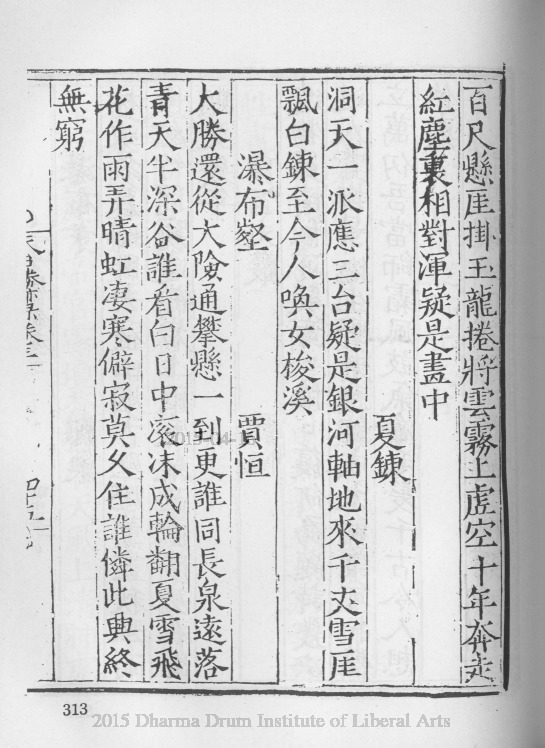 百尺懸崖掛玉龍捲將雲霧上虛空十年奔走
紅塵裏相對渾疑是畫中
夏鍊
洞天一派應三台疑是銀河軸地來千丈雪厓
飄白鍊至今人喚女梭溪
瀑布壑 賈恒
大勝還從大險通攀懸一到更誰同長泉遠落
青天半深谷誰看白日中滚沫成輪翻夏雪飛
花作雨弄晴虹凄寒僻寂莫久住誰憐此興終
無窮
313
2015 Dharma Drum Institute of Liberal Arts